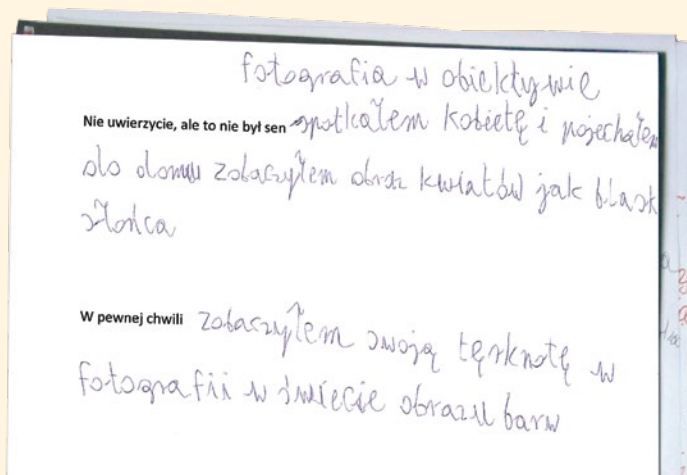 fotografia w obiektywie
Nie uwierzycie, ale to nie był sen spotkałem kobietę i pojechałem
do domu zobaczyłem obraz kwiatów jak blask
słońca
W pewnej chwili zobaczyłem swoją tęsknotę w
fotografii w świecie obrazu barw